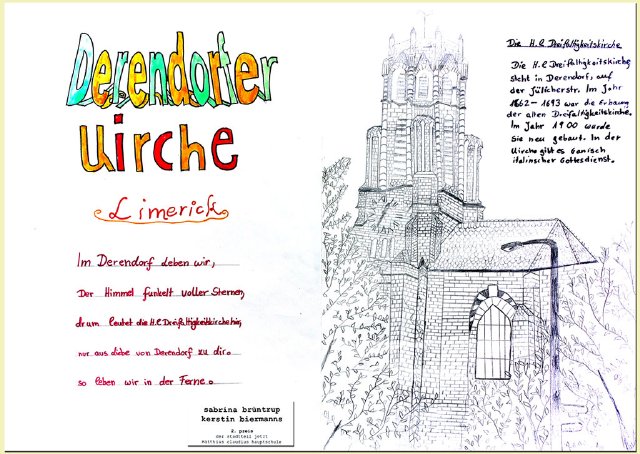 Derendorfer
Kirche
Limerick
Im Derendorf leben wir,
Der Himmel funkelt voller Sternen,
drum leutet die H.l Dreifaltigkeitkirche hin,
nur aus liebe von Derendorf zu dir.
so leben wir in der Ferne.
sabrina brüntrup
kerstin biermanns
2. preis
der stadtteil jetzt
Matthias claudius hauptschule
Die H.l Dreifaltigkeitskirche
Die H.l Dreifaltigkeitskirche
steht in Derendorf, auf
der Jülicherstr. Im Jahr
1662-1693 war die Erbaung
der alten Dreifaltigkeitskirche.
Im Jahr 1900 wurde
Sie neu gebaut. In der
Kirche gibt es
italinscher Gottesdienst.